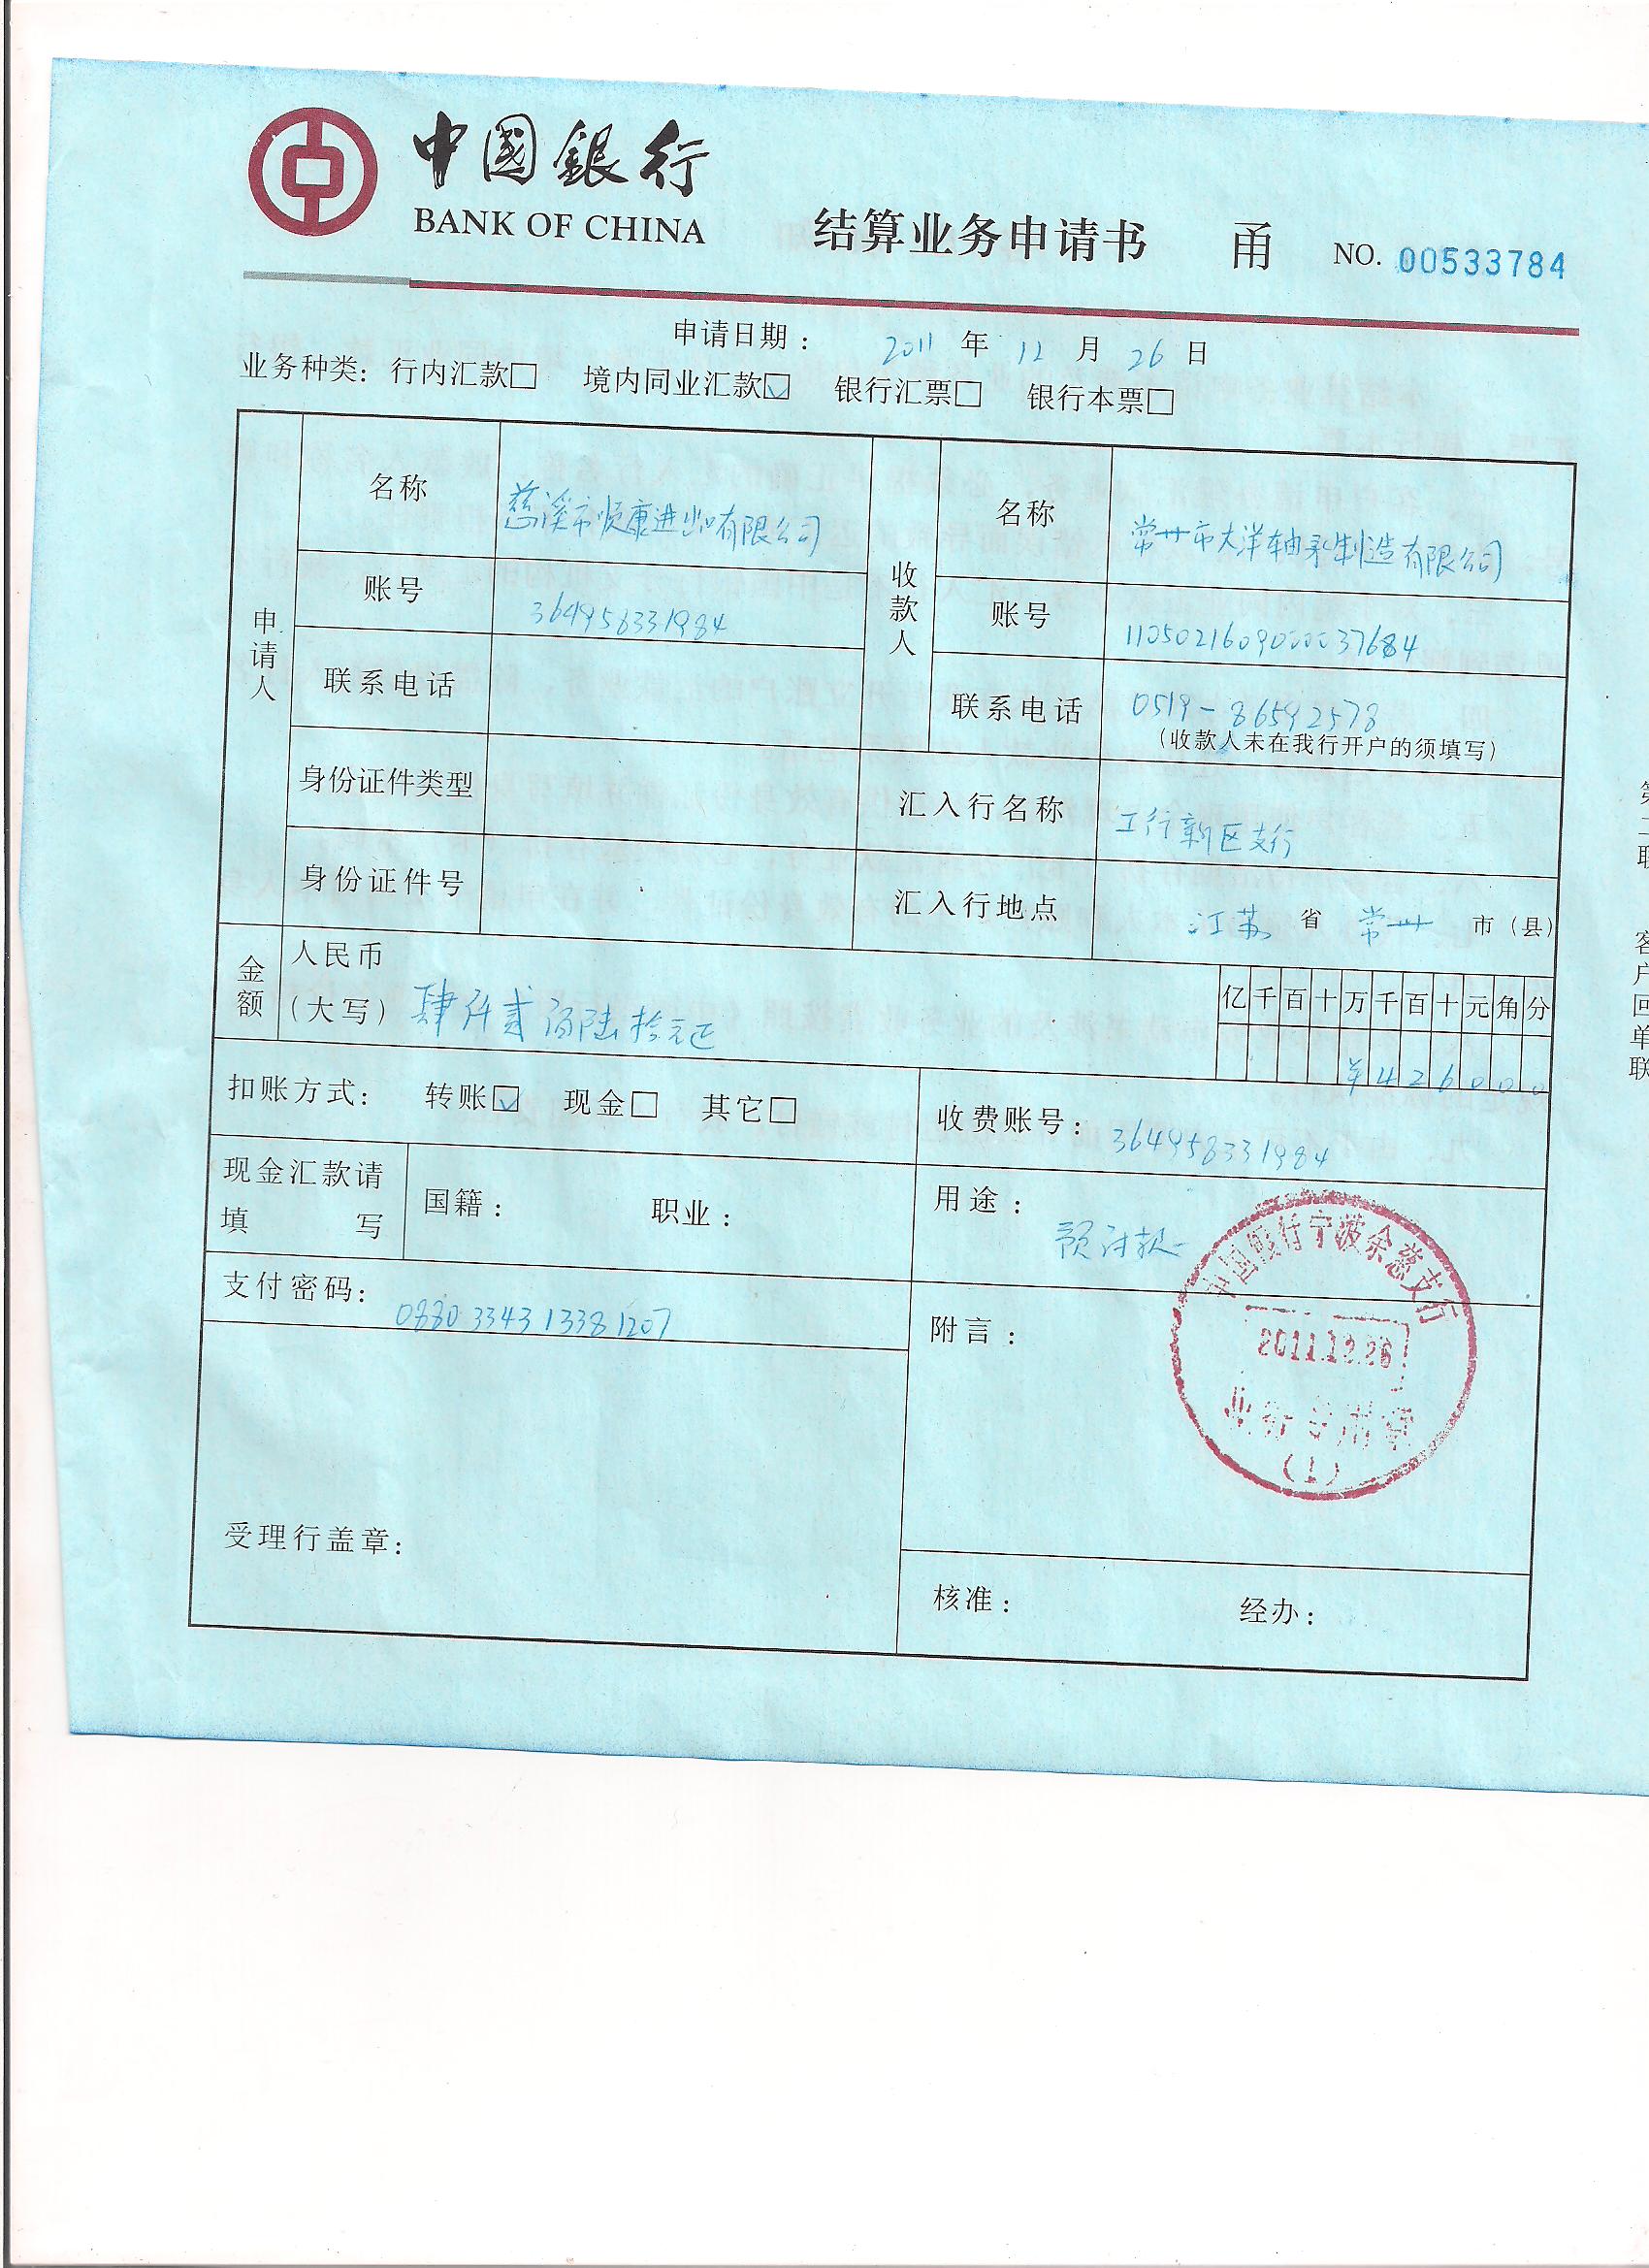 中國銀行
BANK OF CHINA
结算业务申请书 甬 NO. 00533784
申请日期： 2011 年 12 月 26 日
业务种类: 行内汇款□ 境内同业汇款☑ 银行汇票□ 银行本票□
申请人
名称 慈溪市顺康进出口有限公司
账号 364958331984
联系电话
身份证件类型
身份证件号
收款人
名称 常州市大洋轴承制造有限公司
账号 1105021609000037684
联系电话 0519-86592578
(收款人未在我行开户的须填写)
汇入行名称 工行新区支行
汇入行地点 江苏 省 常州 市（县）
金额 人民币
（大写） 肆仟贰佰陆拾元正
亿千百十万千百十元角分
¥426000
扣账方式: 转账☑ 现金□ 其它□
收费账号: 364958331984
现金汇款请
填 写
国籍: 职业:
用途: 预付款
支付密码: 0880 3343 1338 1207
附言:
中国银行宁波余慈支行
2011.12.26
业务专用章
(1)
受理行盖章:
核准: 经办:
客户回单联